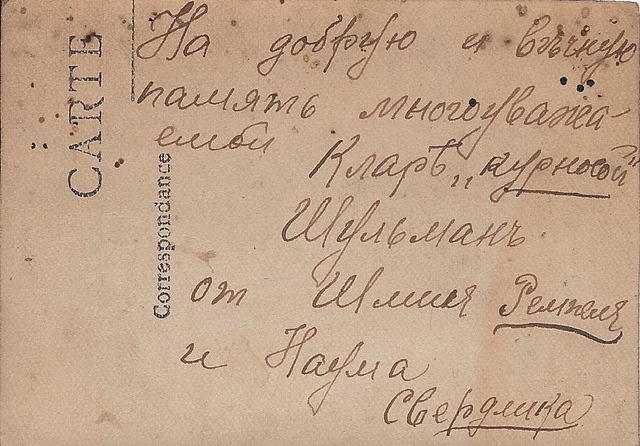 CARTE
Correspondance
На добрую и вѣчную
память многоуважа-
емой
Кларѣ „курносой"
Шульманъ
от Шмиля Ремпеля
и Наума
Свердлика